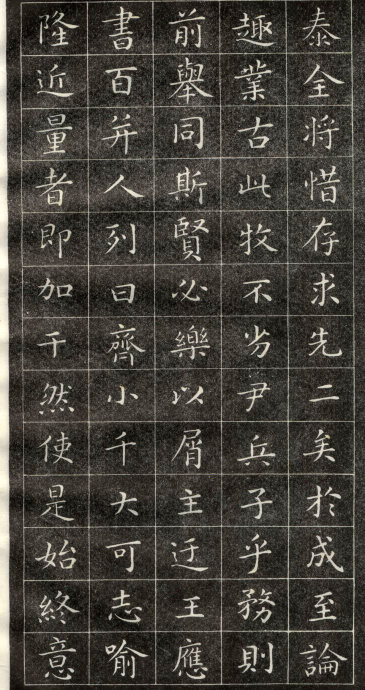 泰全将惜存求先二矣於成至論
趣業古此牧不劣尹兵子乎務則
前舉同斯賢必樂以屑主迂王應
書百并人列曰齊小千大可志喻
隆近量者即加干然使是始終意